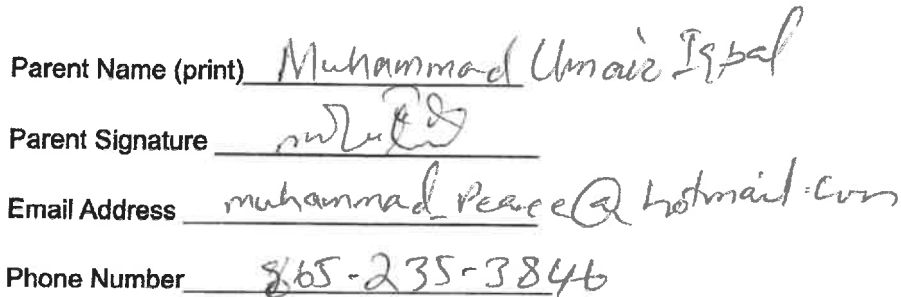 Parent Name (print) Muhammad Umair Iqbal
Parent Signature
Email Address muhammad_Peace@hotmail.com
Phone Number 865-235-3846